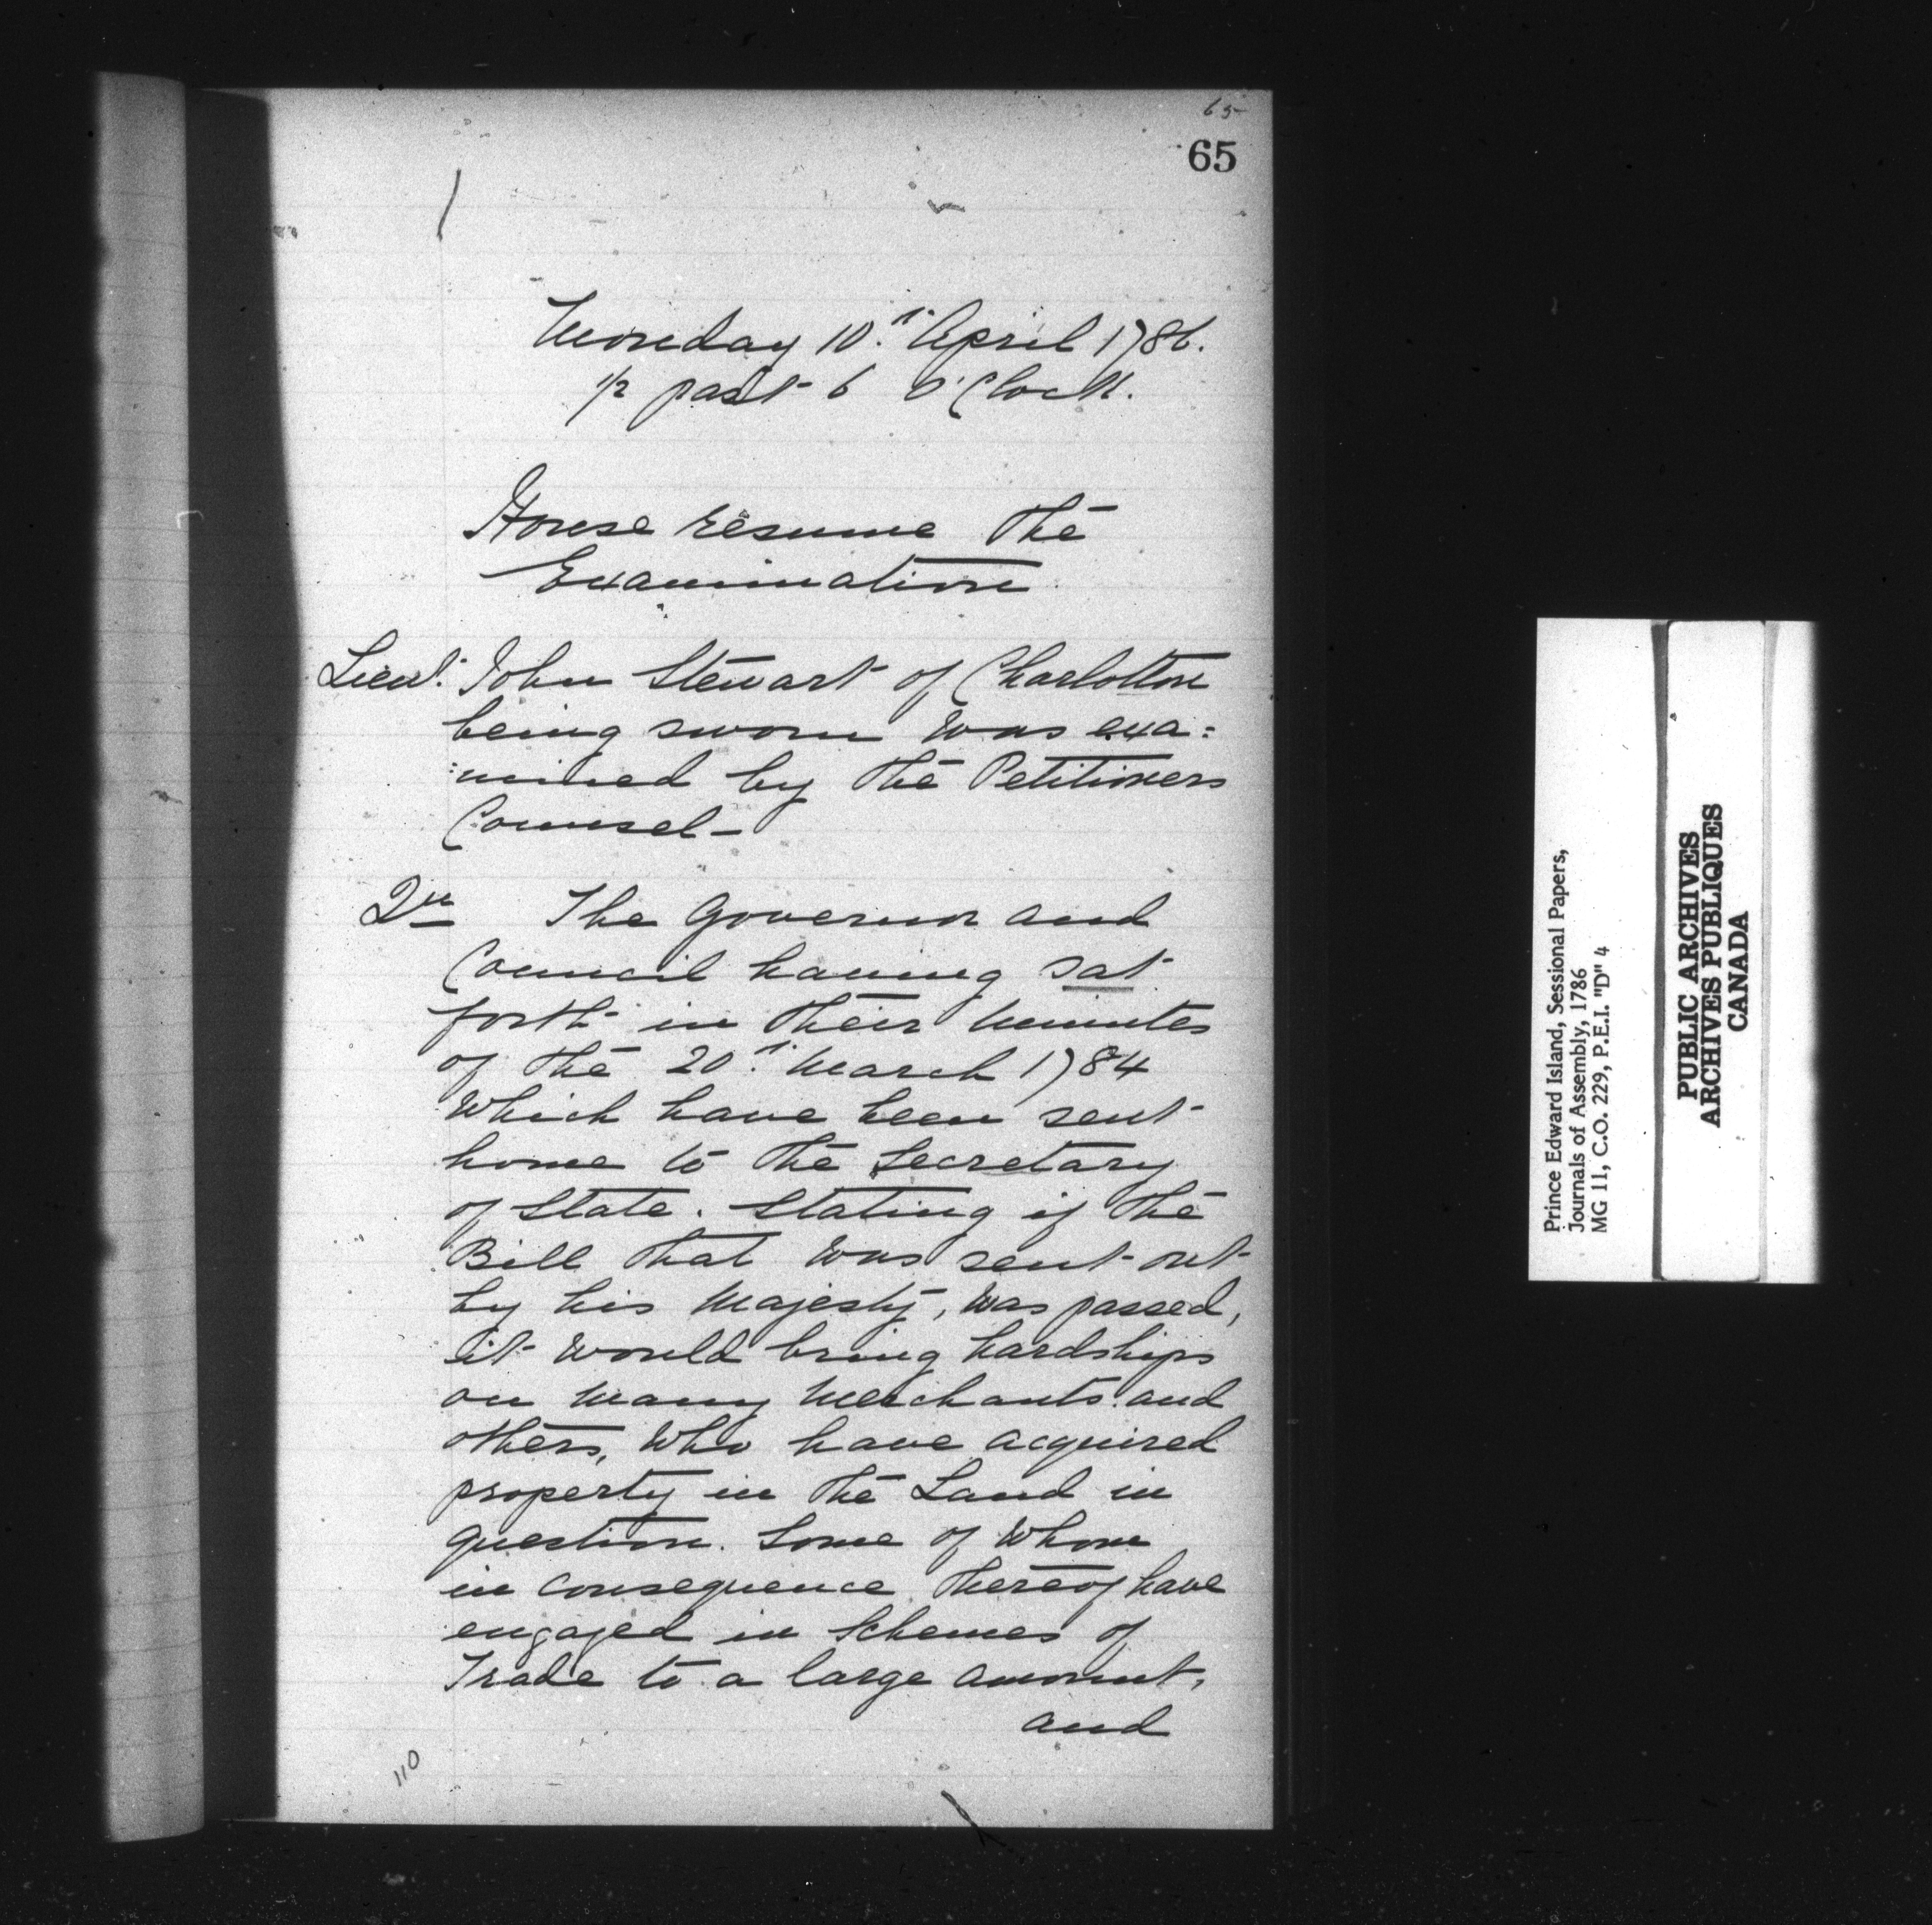 65
65
Monday 10.th April 1786.
1/2 past 6 O'Clock.
House resume the
Examination
Lieut. John Stewart of Charlotton
being sworn was exa:
:mined by the Petitioners
Counsel-
Qu The Governor and
Council having sat
forth in their Minutes
of the 20.th March 1784
Which have been sent
home to the Secretary
of State. Stating if the
Bill that was sent out
by his Majesty, was passed,
it would bring hardships
on many Merchants and
others, Who have acquired
property in the Land in
question. Some of Whom
in consequence thereof have
engaged in Schemes of
Trade to a large amount,
and
110
Prince Edward Island, Sessional Papers,
Journals of Assembly, 1786
MG 11, C.O. 229, P.E.I. "D" 4
PUBLIC ARCHIVES
ARCHIVES PUBLIQUES
CANADA